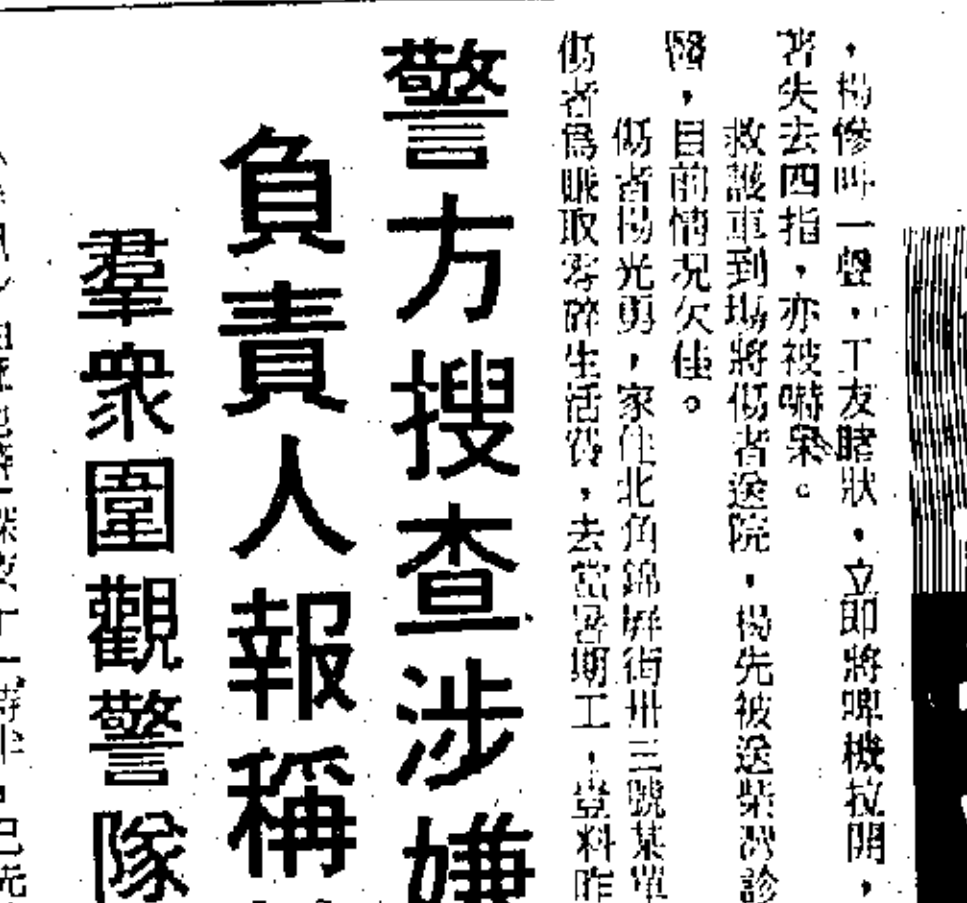 ，楊慘叫一聲，工友睹狀，立即將啤機拉開，
著失去四指，亦被嚇呆。
救護車到塲將傷者送院，楊先被送柴灣診
醫，目前情况欠佳。
傷者楊光勇，家住北角錦屏街卅三號某單
傷者爲賺取零碎生活費，去當暑期工，豈料昨
警方搜查涉嫌
負責人報稱
羣衆圍觀警隊